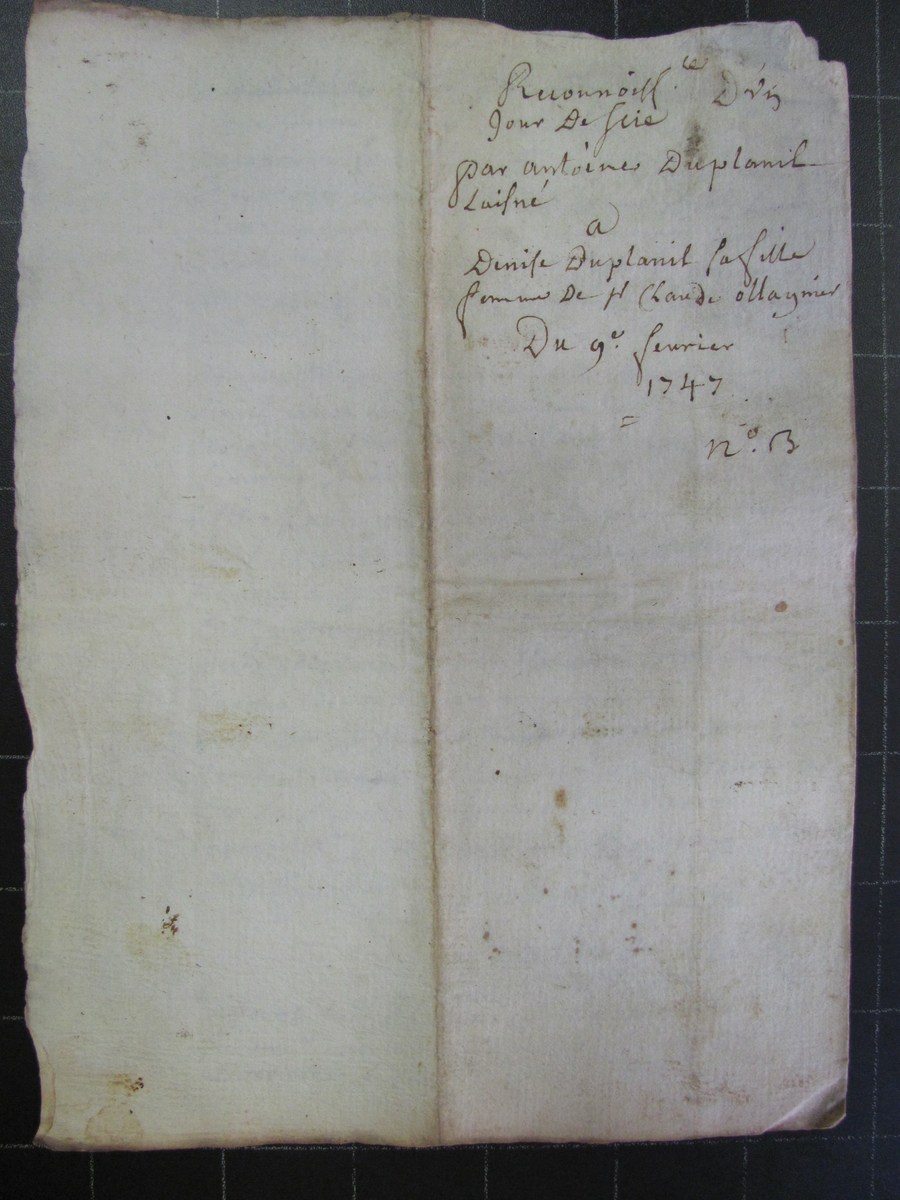 Reconnoiss.ce D'vn
Jour De scie
par antoine Duplanil
Laisné
a
Denise Duplanil sa fille
femme De sr Claude ollagnier
Du 9e. feurier
1747
=
no. B